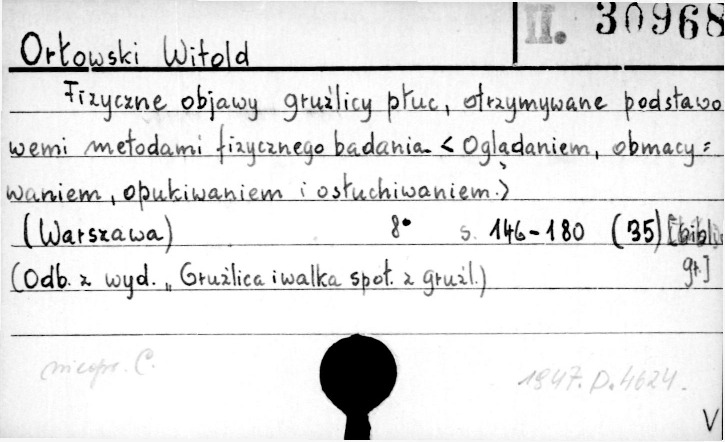 II. 30968
Orłowski Witold
Fizyczne objawy gruźlicy płuc, otrzymywane podstawo
wemi metodami fizycznego badania < Oglądaniem, obmacy=
waniem, opukiwaniem i osłuchiwaniem.>
(Warszawa) 8° s. 146-180 (35) [biblio
gr.]
(Odb. z wyd. „Gruźlica i walka społ. z gruźl.)
nieopr. C.
1947.D.4624.
V